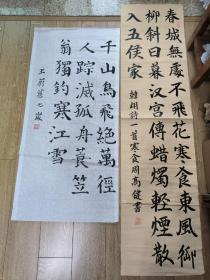 春城無處不飛花寒食東風御
柳斜日暮漢宮傳蠟燭輕煙散
入五侯家
韓翃詩一首寒食周高健書
千山鳥飛絶萬徑
人踪滅孤舟蓑笠
翁獨釣寒江雪
王蔚 七歲